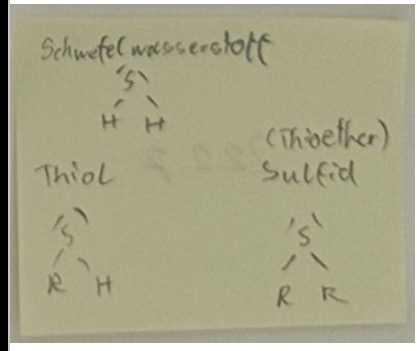 Schwefelwasserstoff
S
H H
(Thioether)
Thiol Sulfid
S S
R H R R